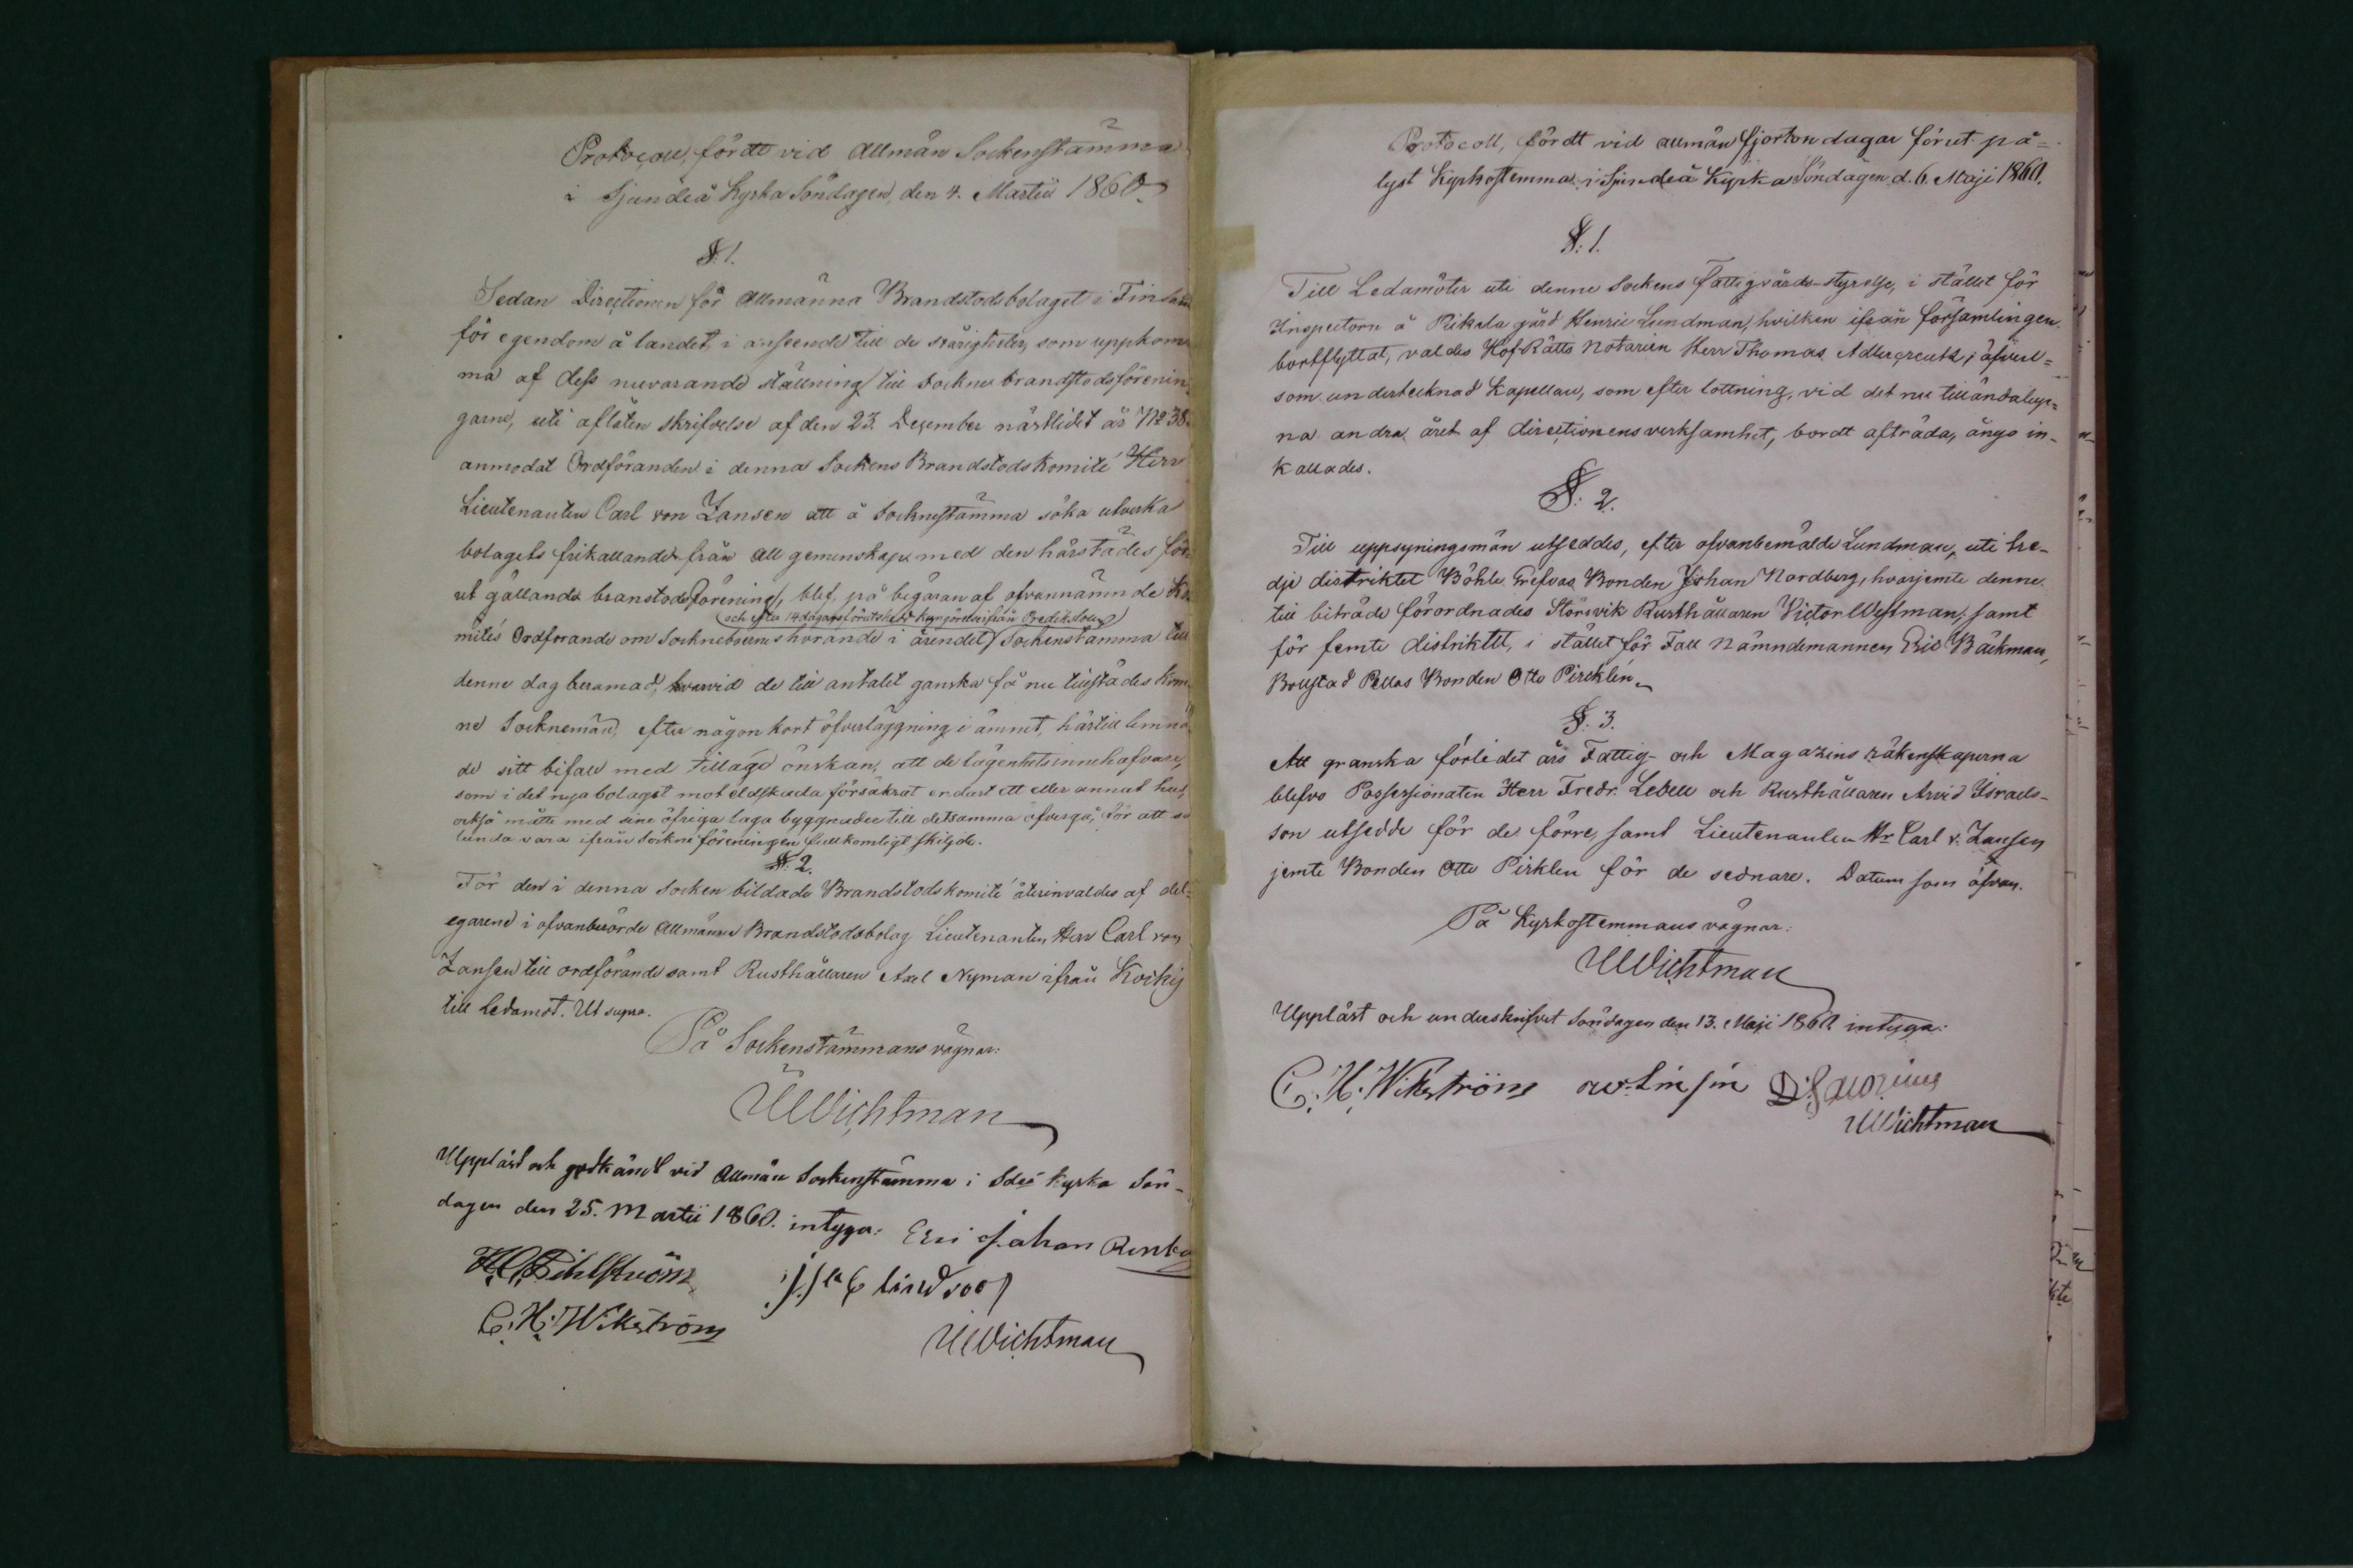 Protocoll, fördt vid Allmän Sockenstämma
i Sjundeå Kyrka Söndagen, den 4. Martii 1860.
§. 1.
Sedan Directionen för Allmänna Brandstodsbolaget i Finland
för egendom å landet, i anseende till de svårigheter, som uppkom
ma af dess nuvarande ställning till Sockne brandstodsförenin
garne, uti aflåten skrifvelse af den 23. December nästlidet år No 38
anmodat Ordföranden i denna Sockens Brandstods Komité Herr
Lieutenanten Carl von Zansen att å Socknestämma söka utverka
bolagets frikallande från all gemenskap med den härstädes för
ut gällande branstodsförening, blef, på begäran af ofvannämnde Ko
(och efter 14 dagars förutskedd kungörelse ifrån Predikstolen)
mités Ordförande om Sockneboernes hörande i ärendet, Sockenstämma till
denne dag beramad, hvarvid de till antalet ganska få nu tillstädes kom
ne Socknemän, efter någon kort öfverläggning i ämnet, härtill lemna
de sitt bifall med tillagd önskan, att de lägenhetsinnehafvare,
som i det nya bolaget mot eldskada försäkrat endast ett eller annat hus,
också måtte med sine öfriga laga byggnader till detsamma öfvergå, för att så
lunda vara ifrån Sockne föreningen fullkomligt skiljde.
§. 2.
För den i denna Socken bildade Brandstods komité återinvaldes af del-
egarene i ofvanberörde Allmänna Brandstodsbolag Lieutenanten Herr Carl von
Zansen till ordförande samt Rusthållaren Axel Nyman ifrån Kockis
till Ledamot. Ut supra.
På Sockenstämmans vägnar:
UWichtman
Uppläst och godkändt vid Allmän Sockenstämma i Sdeå Kyrka Sön-
dagen den 25. Martii 1860. intyga: Eric Johan
C. H. Wikström
UWichtman
Protocoll, fördt vid allmän fjorton dagar förut på-
lyst Kyrkostemma i Sjundeå Kyrka Söndagen d. 6. Maji 1860.
§. 1.
Till Ledamöter uti denne Sockens Fattigvårds-styrelse, i stället för
Inspectorn å Pikala gård Henric Lundman, hvilken ifrån församlingen
bortflyttat, valdes HofRätts Notarien Herr Thomas Adlercreutz, äfvensom
som undertecknad Kapellan, som efter lottning, vid det nu tilländalup-
na andra året af directionens verksamhet, bordt afträda, ånyo in-
kallades.
§. 2.
Till uppsyningsmän utseddes, efter ofvanbemälde Lundman, uti tre-
dje distriktet Böhle Grefvas Bonden Johan Nordberg, hvarjemte denne
till biträde förordnades Störsvik Rusthållaren Victor Westman, samt
för femte distriktet, i stället för Fall Nämndemannen Eric Bäckman,
Bollstad Pellas Bonden Otto Pircklén.
§. 3.
Att granska förlidet års Fattig- och Magazins räkenskaperna
blefvo Possessionaten Herr Fredr. Lebell och Rusthållaren Arvid Israels-
son utsedde för de förre, samt Lieutenanten Hr Carl v. Zansen
jemte Bonden Otto Pirklen för de sednare. Datum som ofvan.
På Kyrkostemmans vägnar:
UWichtman
Uppläst och underskrifvet Söndagen den 13. Maji 1860 intyga:
C. H. Wikström
UWichtman